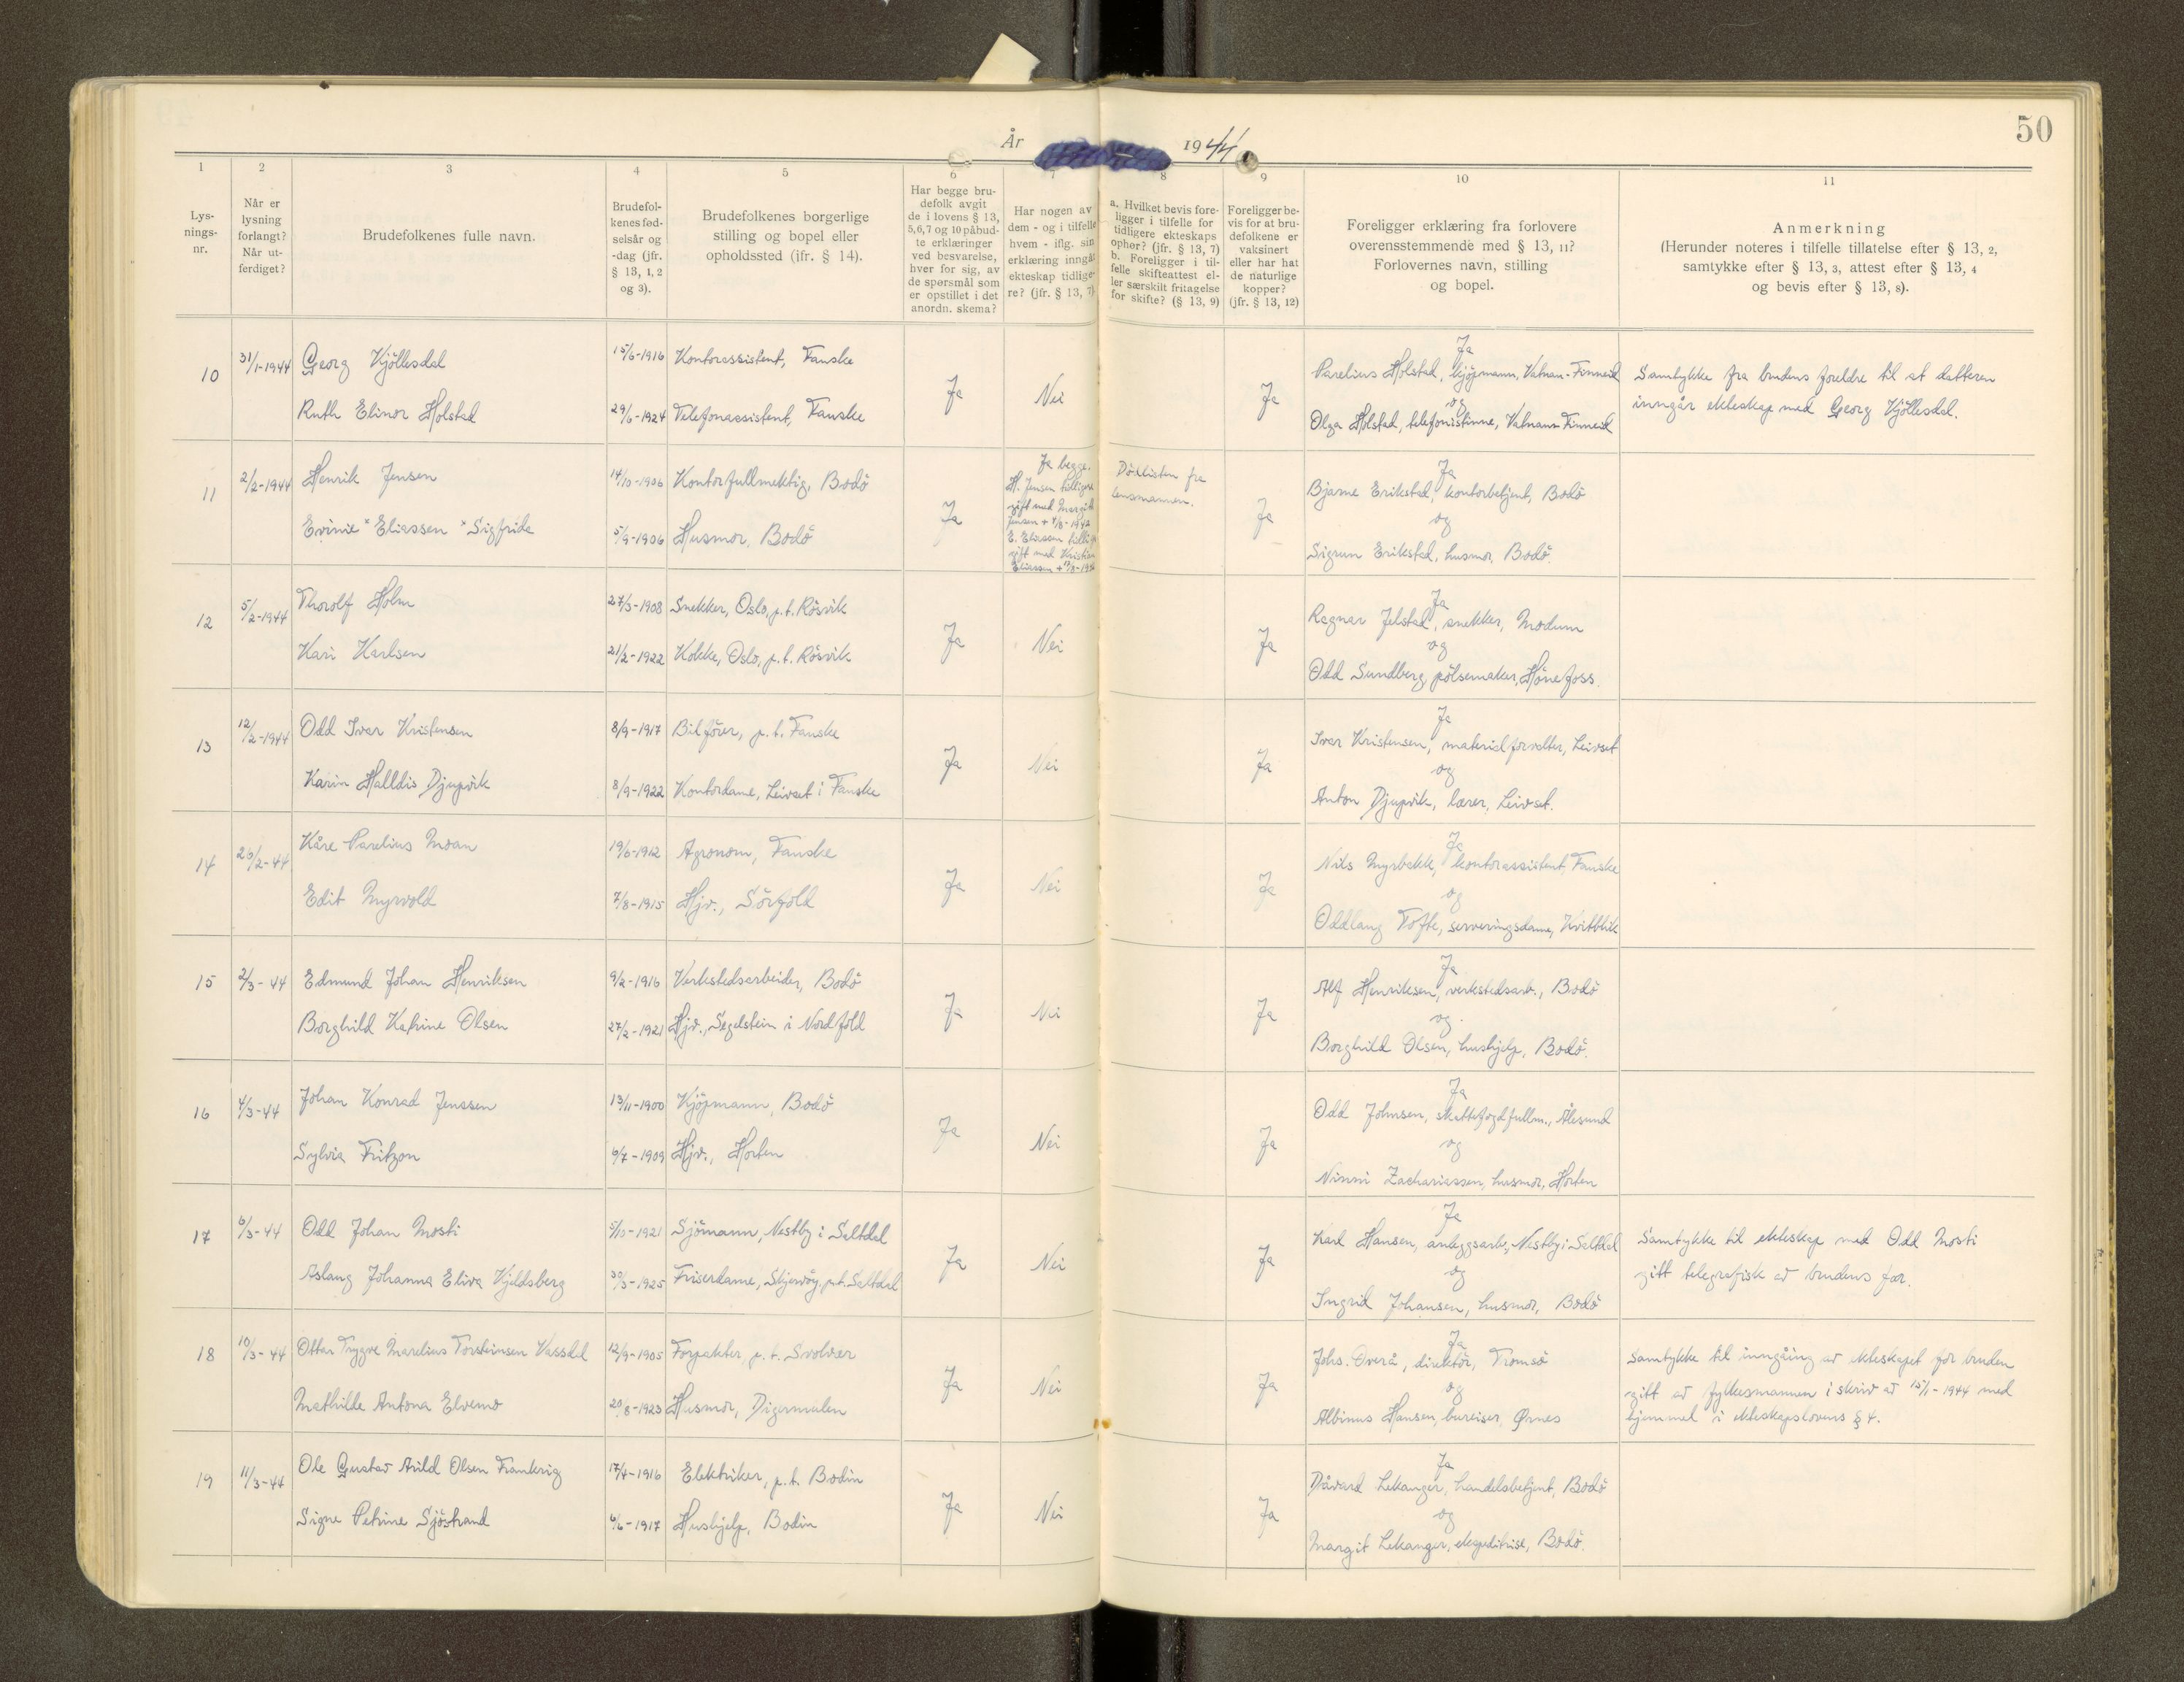 50
År 1944
1
2
3
4
5
6
7
8
9
10
11
Lys-
nings-
nr.
Når er
lysning
forlangt?
Når ut-
ferdiget?
Brudefolkenes fulle navn.
Brudefol-
kenes fød-
selsår og
-dag (jfr.
§ 13, 1, 2
og 3).
Brudefolkenes borgerlige
stilling og bopel eller
opholdssted (jfr. § 14).
Har begge bru-
defolk avgit
de i lovens § 13,
5,6,7 og 10 påbud-
te erklæringer
ved besvarelse,
hver for sig, av
de spørsmål som
er opstillet i det
anordn. skema?
Har nogen av
dem - og i tilfelle
hvem - iflg. sin
erklæring inngåt
ekteskap tidlige-
re? (jfr. § 13, 7)
a. Hvilket bevis fore-
ligger i tilfelle for
tidligere ekteskaps
ophør? (jfr. § 13, 7)
b. Foreligger i til-
felle skifteattest el-
ler særskilt fritagelse
for skifte? (§ 13, 9)
Foreligger be-
vis for at bru-
defolkene er
vaksinert
eller har hat
de naturlige
kopper?
(jfr. § 13, 12)
Foreligger erklæring fra forlovere
overensstemmende med § 13, 11?
Forlovernes navn, stilling
og bopel.
Anmerkning
(Herunder noteres i tilfelle tillatelse efter § 13, 2,
samtykke efter § 13, 3, attest efter § 13, 4
og bevis efter § 13, 8).
10
31/1-1944
Georg Kjöllesdal
15/6-1916
Kontorassistent, Fauske
Ruth Elinor Holstad
29/6-1924
Telefonassistent, Fauske
Ja
Nei
Ja
Ja
Parelius Holstad, kjöpmann, Vatnan-Finneid
og
Olga Holstad, telefonistinne, Vatnann Finneid
Samtykke fra brudens foreldre til at datteren
inngår ekteskap med Georg Kjöllesdal.
11
2/2-1944
Henrik Jensen
14/10-1906
Kontorfullmektig, Bodö
Evinie "Eliassen" Sigfrida
5/9-1906
Husmor, Bodö
Ja
Ja begge.
H. Jensen tidligere
gift med Margit
Jensen + 4/8-1942
E. Eliassen tidlig
gift med Kristian
Dödslisten fra
lensmannen.
Ja
Ja
Bjarne Erikstad, kontorbetjent, Bodö
og
Sigrun Erikstad, husmor, Bodö.
12
5/2-1944
Thorolf Holm
27/3-1908
Snekker, Oslo, p.t. Rösvik
Kari Karlsen
21/2-1922
Kokke, Oslo, p.t. Rösvik
Ja
Nei
Ja
Ja
Ragnar Jelstad, snekker, Modum
og
Odd Sundberg, pölsemaker, Hönefoss.
13
12/2-1944
Odd Ivar Kristensen
8/9-1917
Bilförer, p.t. Fauske
Karin Halldis Djupvik
8/9-1922
Kontordame, Leivset i Fauske
Ja
Nei
Ja
Ja
Ivar Kristensen, materialforvalter, Leivset
og
Anton Djupvik, lærer, Leivset.
14
26/2-44
Kåre Parelius Moan
19/6-1912
Agronom, Fauske
Edit Myrvold
7/8-1915
Hjv., Sörfold
Ja
Nei
Ja
Ja
Nils Myrbakk, kontorassistent, Fauske
og
Oddlaug Tofte, serveringsdame, Kvitblik
15
2/3-44
Edmund Johan Henriksen
9/2-1916
Verkstedsarbeider, Bodö
Borghild Katrine Olsen
27/2-1921
Hjv., Segelstein i Nordfold
Ja
Nei
Ja
Ja
Alf Henriksen, verkstedsarb., Bodö
og
Borghild Olsen, hushjelp, Bodö.
16
4/3-44
Johan Konrad Jenssen
13/11-1900
Kjöpmann, Bodö
Sylvia Fritzon
6/7-1909
Hjv., Horten
Ja
Nei
Ja
Ja
Odd Johnsen, skattefogdfullm., Ålesund
og
Ninni Zachariassen, husmor, Horten
17
6/3-44
Odd Johan Mosti
5/10-1921
Sjömann, Nestby i Saltdal
Aslaug Johanna Eliva Kjeldsberg
30/3-1925
Friserdame, Skjervöy, p.t. Saltdal
Ja
Nei
Ja
Ja
Karl Hansen, anleggsarb., Nestby i Saltdal
og
Ingrid Johansen, husmor, Bodö
Samtykke til ekteskap med Odd Mosti
gitt telegrafisk av brudens far.
18
10/3-44
Ottar Trygve Marelius Torsteinsen Vassdal
12/9-1905
Forpakter, p.t. Svolvær
Mathilde Antona Elvemo
20/8-1923
Husmor, Digermulen
Ja
Nei
Ja
Ja
Johs. Overå, direktör, Tromsö
og
Albinus Hansen, bureiser, Ørnes
Samtykke til inngåing av ekteskapet for bruden
gitt av fylkesmannen i skriv av 15/1-1944 med
hjemmel i ekteskapslovens § 4.
19
11/3-44
Ole Gustav Arild Olsen Framkrig
17/4-1916
Elektriker, p.t. Bodin
Signe Petrine Sjöstrand
6/6-1917
Hushjelp, Bodin
Ja
Nei
Ja
Ja
Dåvard Lekanger, handelsbetjent, Bodö
og
Margit Lekanger, ekspeditrise, Bodö.